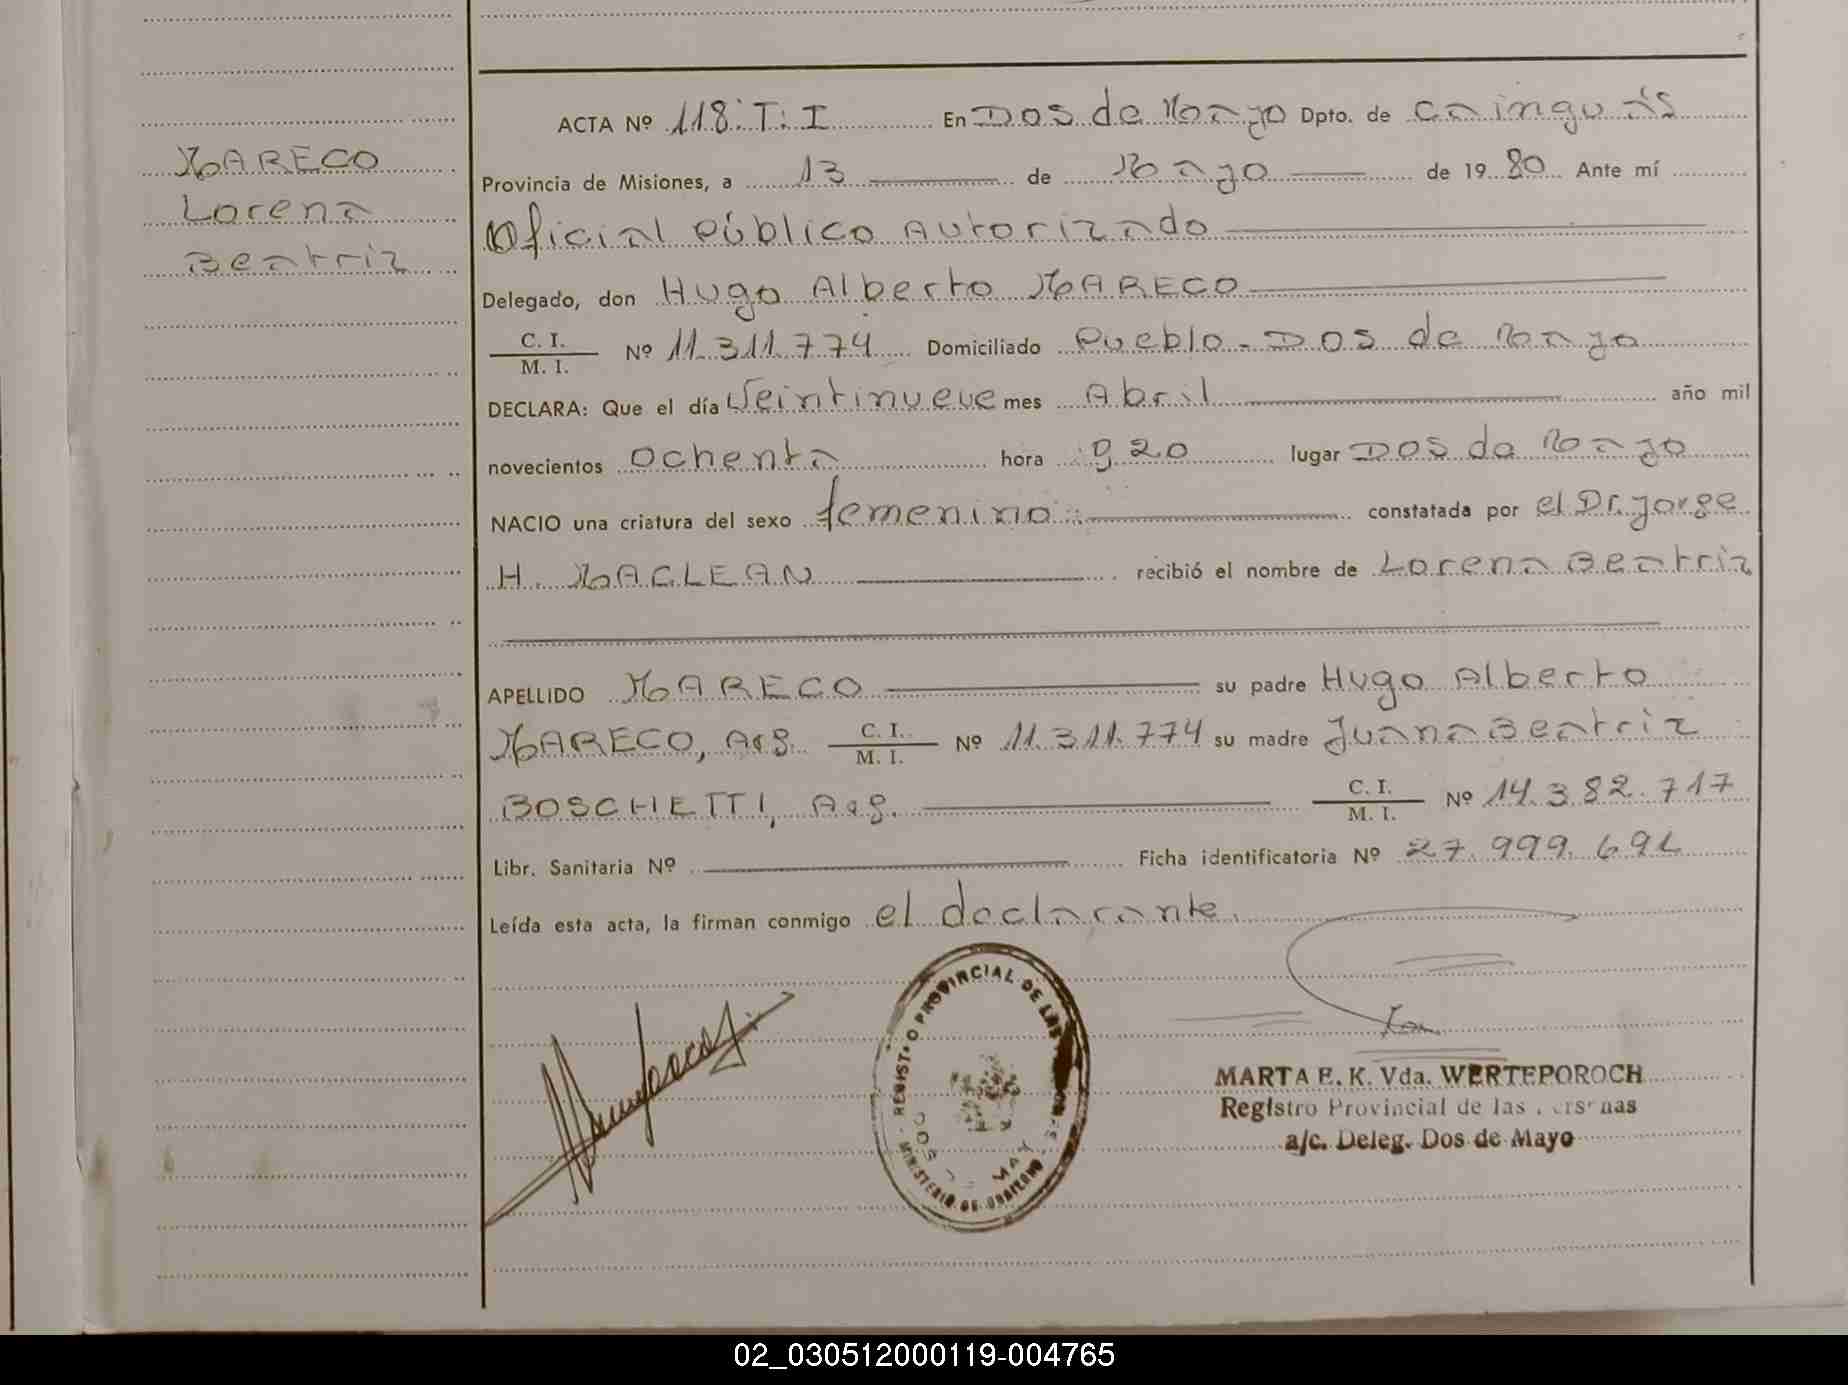 MARECO
Lorena
Beatriz
ACTA Nº 118. T: I En Dos de Mayo Dpto. de Cainguás
Provincia de Misiones, a 13 de Mayo de 1980 Ante mí
Oficial Público Autorizado
Delegado, don Hugo Alberto MARECO
C. I.
M. I. Nº 11.311.774 Domiciliado Pueblo - Dos de Mayo
DECLARA: Que el día Veintinueve mes Abril año mil
novecientos Ochenta hora 9,20 lugar Dos de Mayo
NACIO una criatura del sexo femenino constatada por el Dr. Jorge
H. MACLEAN recibió el nombre de Lorena Beatriz
APELLIDO MARECO su padre Hugo Alberto
MARECO, Arg. C. I. M. I. Nº 11.311.774 su madre Juana Beatriz
BOSCHETTI, Arg. C. I. M. I. Nº 14.382.717
Libr. Sanitaria Nº Ficha identificatoria Nº 27.999.691
Leída esta acta, la firman conmigo el declarante
REGISTRO PROVINCIAL DE LAS
MINISTERIO DE GOBIERNO
DOS DE MAYO
MARTA E. K. Vda. WERTEPOROCH
Registro Provincial de las Personas
a/c. Deleg. Dos de Mayo
02_030512000119-004765